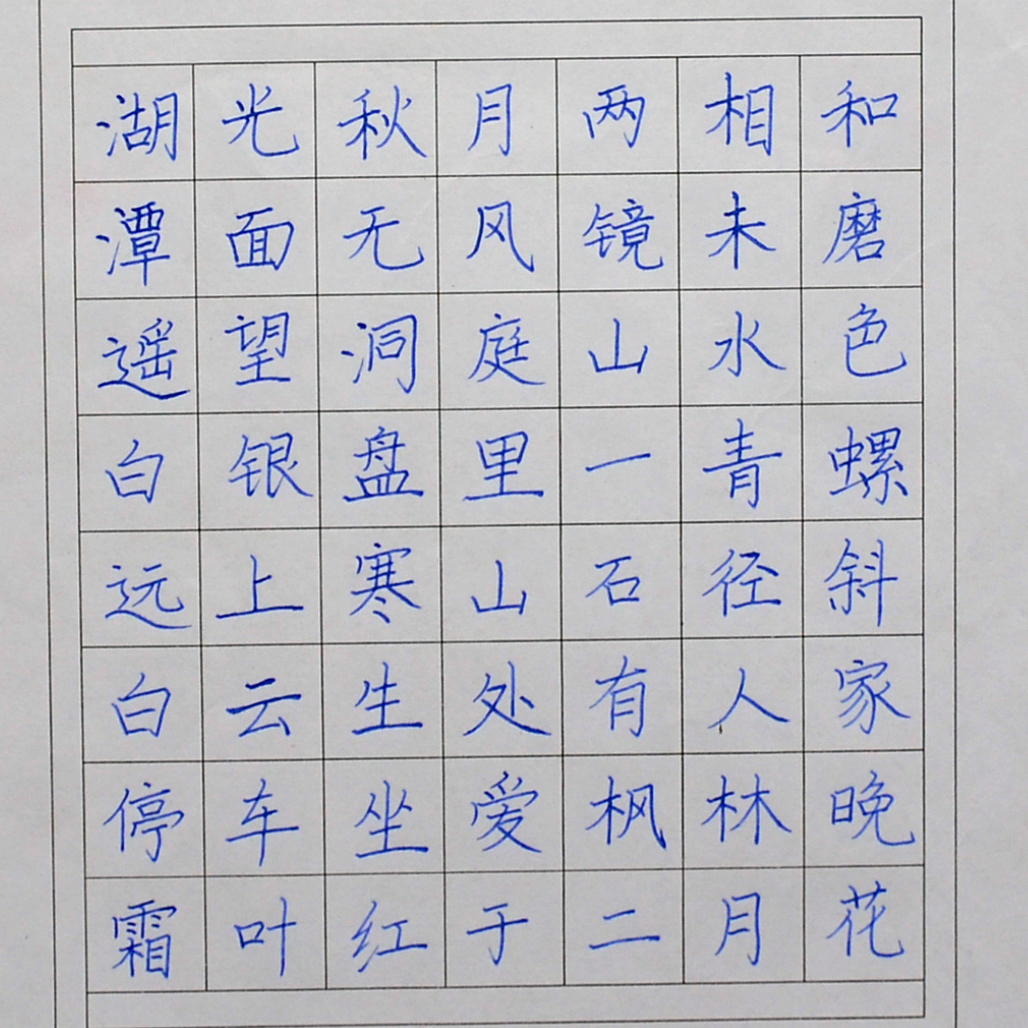 湖光秋月两相和
潭面无风镜未磨
遥望洞庭山水色
白银盘里一青螺
远上寒山石径斜
白云生处有人家
停车坐爱枫林晚
霜叶红于二月花